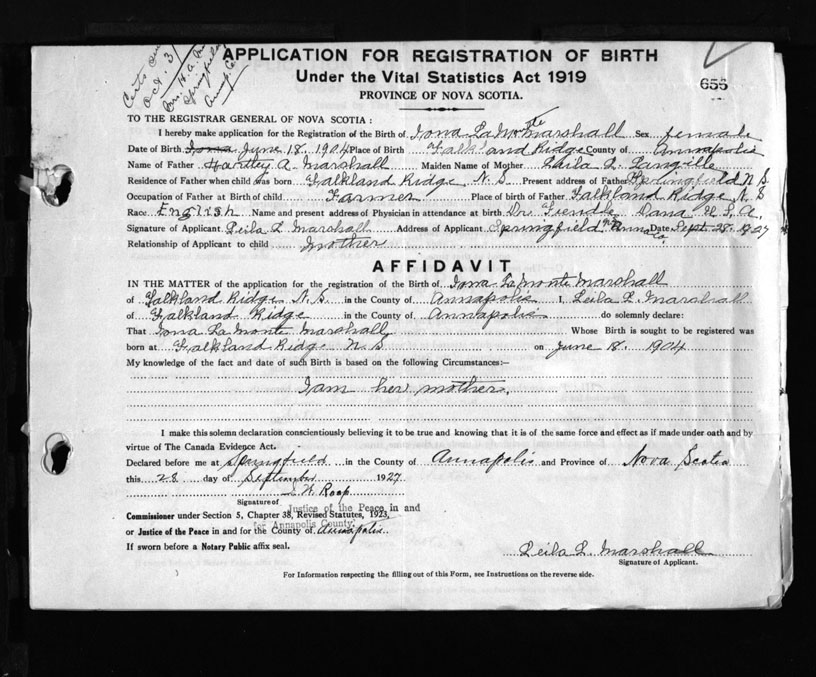 Oct. 3
Springfield
APPLICATION FOR REGISTRATION OF BIRTH
Under the Vital Statistics Act 1919
656
PROVINCE OF NOVA SCOTIA.
TO THE REGISTRAR GENERAL OF NOVA SCOTIA :
I hereby make application for the Registration of the Birth of Iona LaMonte Marshall Sex female
Date of Birth Iona June 18, 1904 Place of Birth Falkland Ridge County of Annapolis
Name of Father Hartley A. Marshall Maiden Name of Mother Leila L. Langille
Residence of Father when child was born Falkland Ridge, N. S. Present address of Father Springfield N S.
Occupation of Father at Birth of child Farmer Place of birth of Father Falkland Ridge N. S
Race English Name and present address of Physician in attendance at birth Dr. Dana U. S. A.
Signature of Applicant Leila L Marshall Address of Applicant Springfield Anna Co Date Sept. 28. 1927
Relationship of Applicant to child mother
AFFIDAVIT
IN THE MATTER of the application for the registration of the Birth of Iona LaMonte Marshall
of Falkland Ridge, N. S. in the County of Annapolis I, Leila L. Marshall
of Falkland Ridge in the County of Annapolis do solemnly declare:
That Iona LaMonte Marshall Whose Birth is sought to be registered was
born at Falkland Ridge N S on June 18. 1904
My knowledge of the fact and date of such Birth is based on the following Circumstances:—
I am her mother.
I make this solemn declaration conscientiously believing it to be true and knowing that it is of the same force and effect as if made under oath and by
virtue of The Canada Evidence Act.
Declared before me at Springfield in the County of Annapolis and Province of Nova Scotia
this 28 day of September 1927
W. Roop
Signature of
Justice of the Peace in and
Commissioner under Section 5, Chapter 38, Revised Statutes, 1923,
for Annapolis County.
or Justice of the Peace in and for the County of Annapolis
If sworn before a Notary Public affix seal.
Leila L. Marshall
Signature of Applicant.
For Information respecting the filling out of this Form, see Instructions on the reverse side.